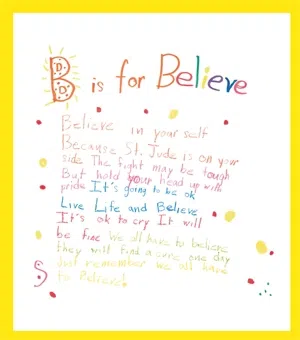 B is for Believe
Believe in your self
Because St. Jude is on your
side The fight may be tough
But hold your head up with
pride It's going to be ok
Live Life and Believe
It's ok to cry It will
be fine We all have to believe
they will find a cure one day
Just remember we all have
to Believe!